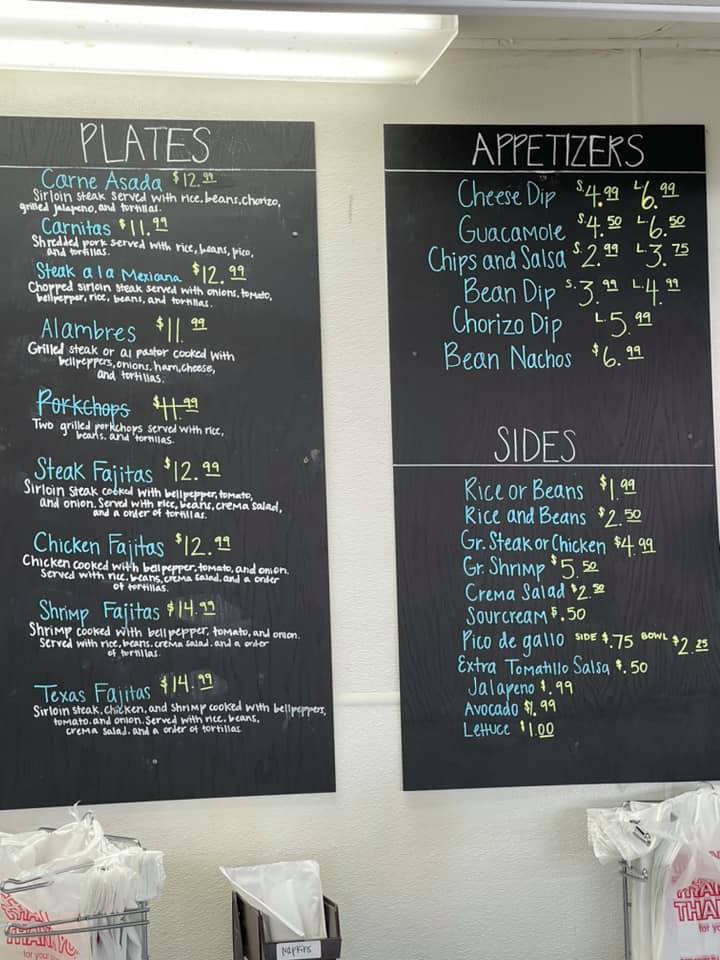 PLATES
Carne Asada $12.99
Sirloin steak served with rice, beans, chorizo,
grilled jalapeno, and tortillas.
Carnitas $11.99
Shredded pork served with rice, beans, pico,
and tortillas.
Steak a la Mexicana $12.99
Chopped sirloin steak served with onions, tomato,
bellpepper, rice, beans, and tortillas.
Alambres $11.99
Grilled steak or al pastor cooked with
bellpeppers, onions, ham, cheese,
and tortillas.
Porkchops $11.99
Two grilled porkchops served with rice,
beans, and tortillas.
Steak Fajitas $12.99
Sirloin steak cooked with bellpepper, tomato,
and onion. Served with rice, beans, crema salad,
and a order of tortillas.
Chicken Fajitas $12.99
Chicken cooked with bellpepper, tomato, and onion.
Served with rice, beans, crema salad, and a order
of tortillas.
Shrimp Fajitas $14.99
Shrimp cooked with bellpepper, tomato, and onion.
Served with rice, beans, crema salad, and a order
of tortillas.
Texas Fajitas $14.99
Sirloin steak, chicken, and shrimp cooked with bellpeppers,
tomato, and onion. Served with rice, beans,
crema salad, and a order of tortillas
APPETIZERS
Cheese Dip S.4.99 L.6.99
Guacamole S.4.50 L.6.50
Chips and Salsa S.2.99 L.3.75
Bean Dip S.3.99 L.4.99
Chorizo Dip L.5.99
Bean Nachos $6.99
SIDES
Rice or Beans $1.99
Rice and Beans $2.50
Gr. Steak or Chicken $4.99
Gr. Shrimp $5.50
Crema Salad $2.50
Sourcream $.50
Pico de gallo SIDE $.75 BOWL $2.25
Extra Tomatillo Salsa $.50
Jalapeno $.99
Avocado $1.99
Lettuce $1.00
NAPKINS
THANK YOU
for your
THAN
for yo